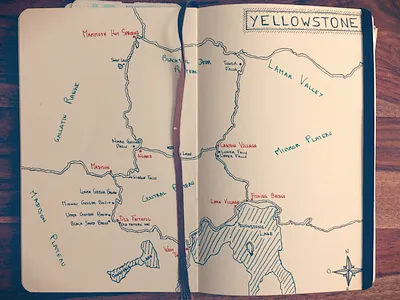 YELLOWSTONE
MAMMOTH HOT SPRINGS
TOWER
FALLS
LAMAR VALLEY
PLATEAU
GALLATIN RANGE
MIRROR PLATEAU
NORRIS GEYSER
BASIN
NORRIS
CANYON VILLAGE
LOWER FALLS
UPPER FALLS
MADISON
CENTRAL PLATEAU
MADISON
PLATEAU
LOWER GEYSER BASIN
MIDWAY GEYSER BASIN
UPPER GEYSER BASIN
BLACK SAND BASIN
OLD FAITHFUL
FISHING BRIDGE
LAKE VILLAGE
YELLOWSTONE
LAKE
WEST
N
O